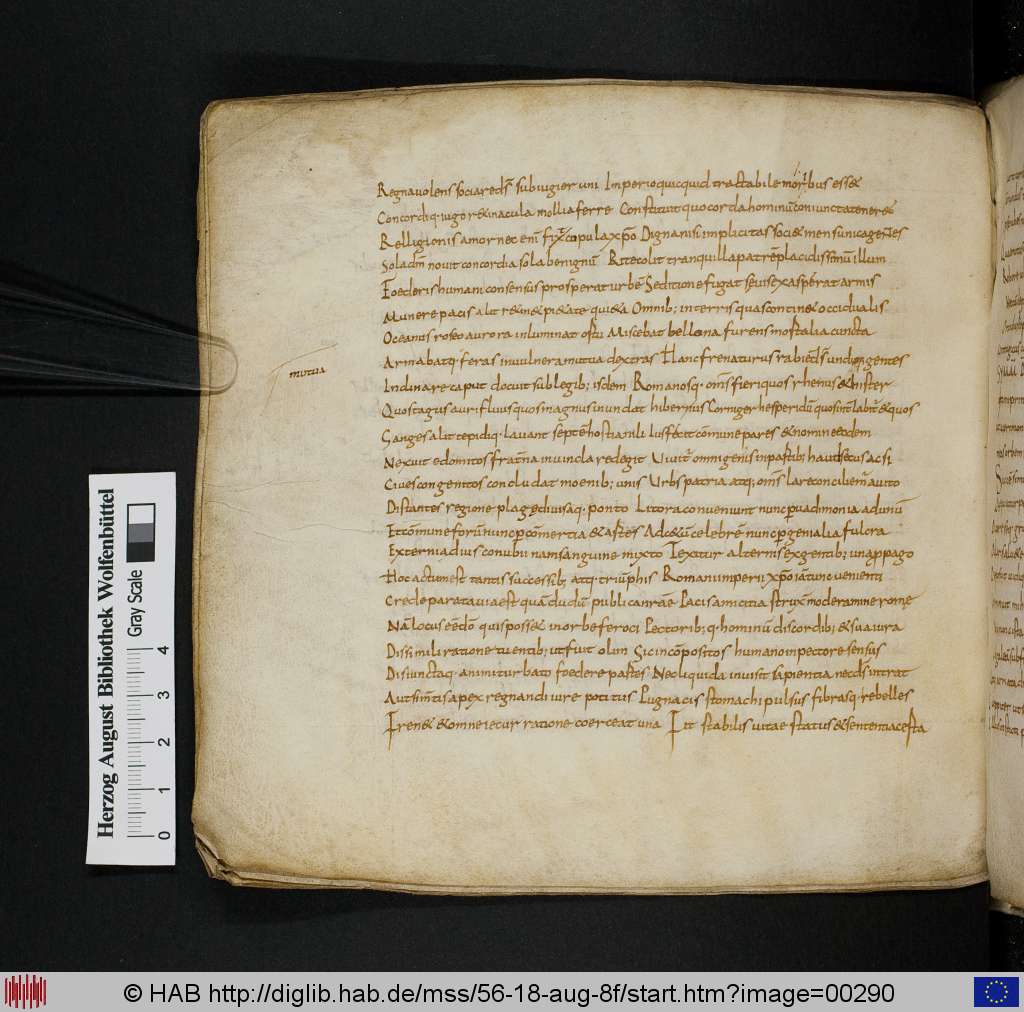 Regna volens sociare ds subiugier uni Imperio quicquid tractabile moribus esset
Concordiq· iugo retinacula mollia ferre Constituit quo corda hominū coniuncta teneret
Relligionis amor nec enī fit copula xpo Digna nisi implicitas societ mens unica gentes
Sola dm̄ novit concordia sola benignū Rite colit tranquilla patrē placidissimū illum
Foederis humani consensus prosperat urbē Seditione fugat sęuis exasperat armis
Munere pacis alit retinet pietate quieta Omnib; in terris quas continet occidualis
Oceanus roseo aurora inluminat ostu Miscebat bellona furens mostalia cuncta
mutua
Armabatq· feras in vulnera mutua dextras Hanc frenaturus rabiē ds undiq· gentes
Inclinare caput docuit sub legib; isdem Romanosq· om̄s fieri quos rhenus et hister
Quos tagus aurifluus quos magnus inundat hiberus Corniger hesperidū quos int labit et quos
Ganges alit tepidiq· lauant septē hostia nili Ius fecit comune pares et nomine eodem
Nexuit et domitos fratna in uincla redegit Uiuit omnigenis in partib; haut secus ac si
Ciues congenitos concludat moenib; unis Urbs patria atq; om̄s lare conciliem auito
Distantes regione plagę diuisaq· ponto Litora conueniunt nunc p uadimonia ad unū
Et comune forū nunc p comertia et artes Ad cetū celebrē nunc p genialia fulcra
Externi ad ius conubii nam sanguine mixto Texitur alternis ex gentib; una ppago
Hoc actum est tantis successib; atq· triūphis Romani imperii xpo iā tunc uenienti
Crede parata uia est quā dudū publica nrae Pacis amicitia struxit moderamine rome
Nā locus eē dō quis posset in orbe feroci Pectorib;q· hominū discordib; et sua iura
Dissimili ratione tuentib; ut fuit olim Sic inconpositos humano in pectore sensus
Disiunctaq· animi turbato foedere partes Nec liquida inuisit sapientia nec ds intrat
At si mtis apex regnandi iure potitus Pugnacis stomachi pulsus fibrasq· rebelles
Frenet et omne iecur ratione coerceat una Fit stabilis uitae status et sententia certa
Herzog August Bibliothek Wolfenbüttel
Gray Scale
0 1 2 3 4
© HAB http://diglib.hab.de/mss/56-18-aug-8f/start.htm?image=00290